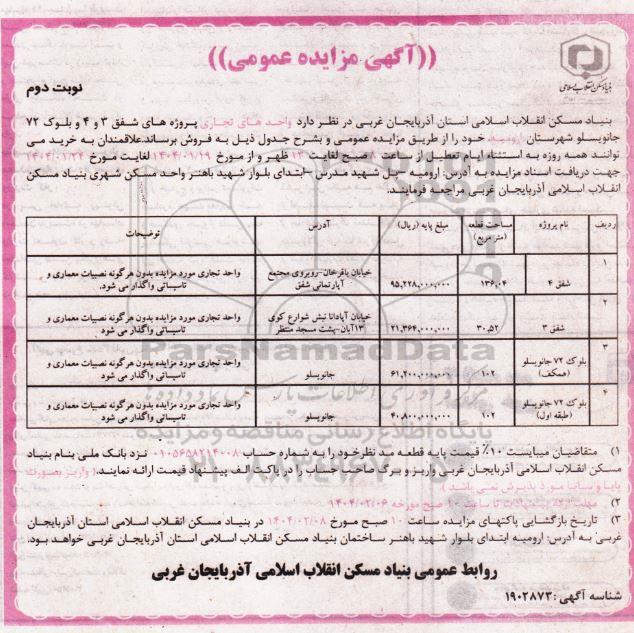 ((آگهی مزایده عمومی))
بنیاد مسکن انقلاب اسلامی
نوبت دوم
بنیاد مسکن انقلاب اسلامی استان آذربایجان غربی در نظر دارد واحد های تجاری پروژه های شفق ۳ و ۴ و بلوک ۷۲
جانویسلو شهرستان ارومیه خود را از طریق مزایده عمومی و بشرح جدول ذیل به فروش برساند.علاقمندان به خرید می
توانند همه روزه به استثناء ایام تعطیل از ساعت ۸ صبح لغایت ۱۳ ظهر و از مورخ ۱۴۰۴/۰۱/۱۹ لغایت مورخ ۱۴۰۴/۰۱/۲۴
جهت دریافت اسناد مزایده به آدرس: ارومیه –پل شهید مدرس –ابتدای بلوار شهید باهنر واحد مسکن شهری بنیاد مسکن
انقلاب اسلامی آذربایجان غربی مراجعه فرمایند.
ردیف | نام پروژه | مساحت قطعه (متر مربع) | مبلغ پایه (ریال) | آدرس | توضیحات
۱ | شفق ۴ | ۱۳۶,۰۴ | ۹۵,۲۲۸,۰۰۰,۰۰۰ | خیابان باقرخان-روبروی مجتمع آپارتمانی شفق | واحد تجاری مورد مزایده بدون هرگونه نصبیات معماری و تاسیساتی واگذار می شود.
۲ | شفق ۳ | ۳۰,۵۲ | ۲۱,۳۶۴,۰۰۰,۰۰۰ | خیابان آپادانا نبش شوارع کوی ۱۳آبان-پشت مسجد منتظر | واحد تجاری مورد مزایده بدون هرگونه نصبیات معماری و تاسیساتی واگذار می شود.
۳ | بلوک ۷۲ جانویسلو (همکف) | ۱۰۲ | ۶۱,۲۰۰,۰۰۰,۰۰۰ | جانویسلو | واحد تجاری مورد مزایده بدون هرگونه نصبیات معماری و تاسیساتی واگذار می شود.
۴ | بلوک ۷۲ جانویسلو (طبقه اول) | ۱۰۲ | ۴۰,۸۰۰,۰۰۰,۰۰۰ | جانویسلو | واحد تجاری مورد مزایده بدون هرگونه نصبیات معماری و تاسیساتی واگذار می شود.
ParsNamadData
پایگاه اطلاع رسانی مناقصه و مزایده
۱) متقاضیان میبایست ۱۰٪ قیمت پایه قطعه مد نظرخود را به شماره حساب ۰۱۰۵۶۵۸۲۱۴۰۰۸ نزد بانک ملی بنام بنیاد
مسکن انقلاب اسلامی آذربایجان غربی واریز و برگ صاحب حساب را در پاکت الف پیشنهاد قیمت ارائه نمایند.( واریز بصورت
پایا و ساتنا مورد پذیرش نمی باشد )
۲) مهلت ارائه پیشنهادات تا ساعت ۱۰ صبح مورخه ۱۴۰۴/۰۲/۰۶
۳) تاریخ بازگشایی پاکتهای مزایده ساعت ۱۰ صبح مورخ ۱۴۰۴/۰۲/۰۸ در بنیاد مسکن انقلاب اسلامی استان آذربایجان
غربی به آدرس: ارومیه ابتدای بلوار شهید باهنر ساختمان بنیاد مسکن انقلاب اسلامی استان آذربایجان غربی خواهد بود.
روابط عمومی بنیاد مسکن انقلاب اسلامی آذربایجان غربی
شناسه آگهی :۱۹۰۲۸۷۳